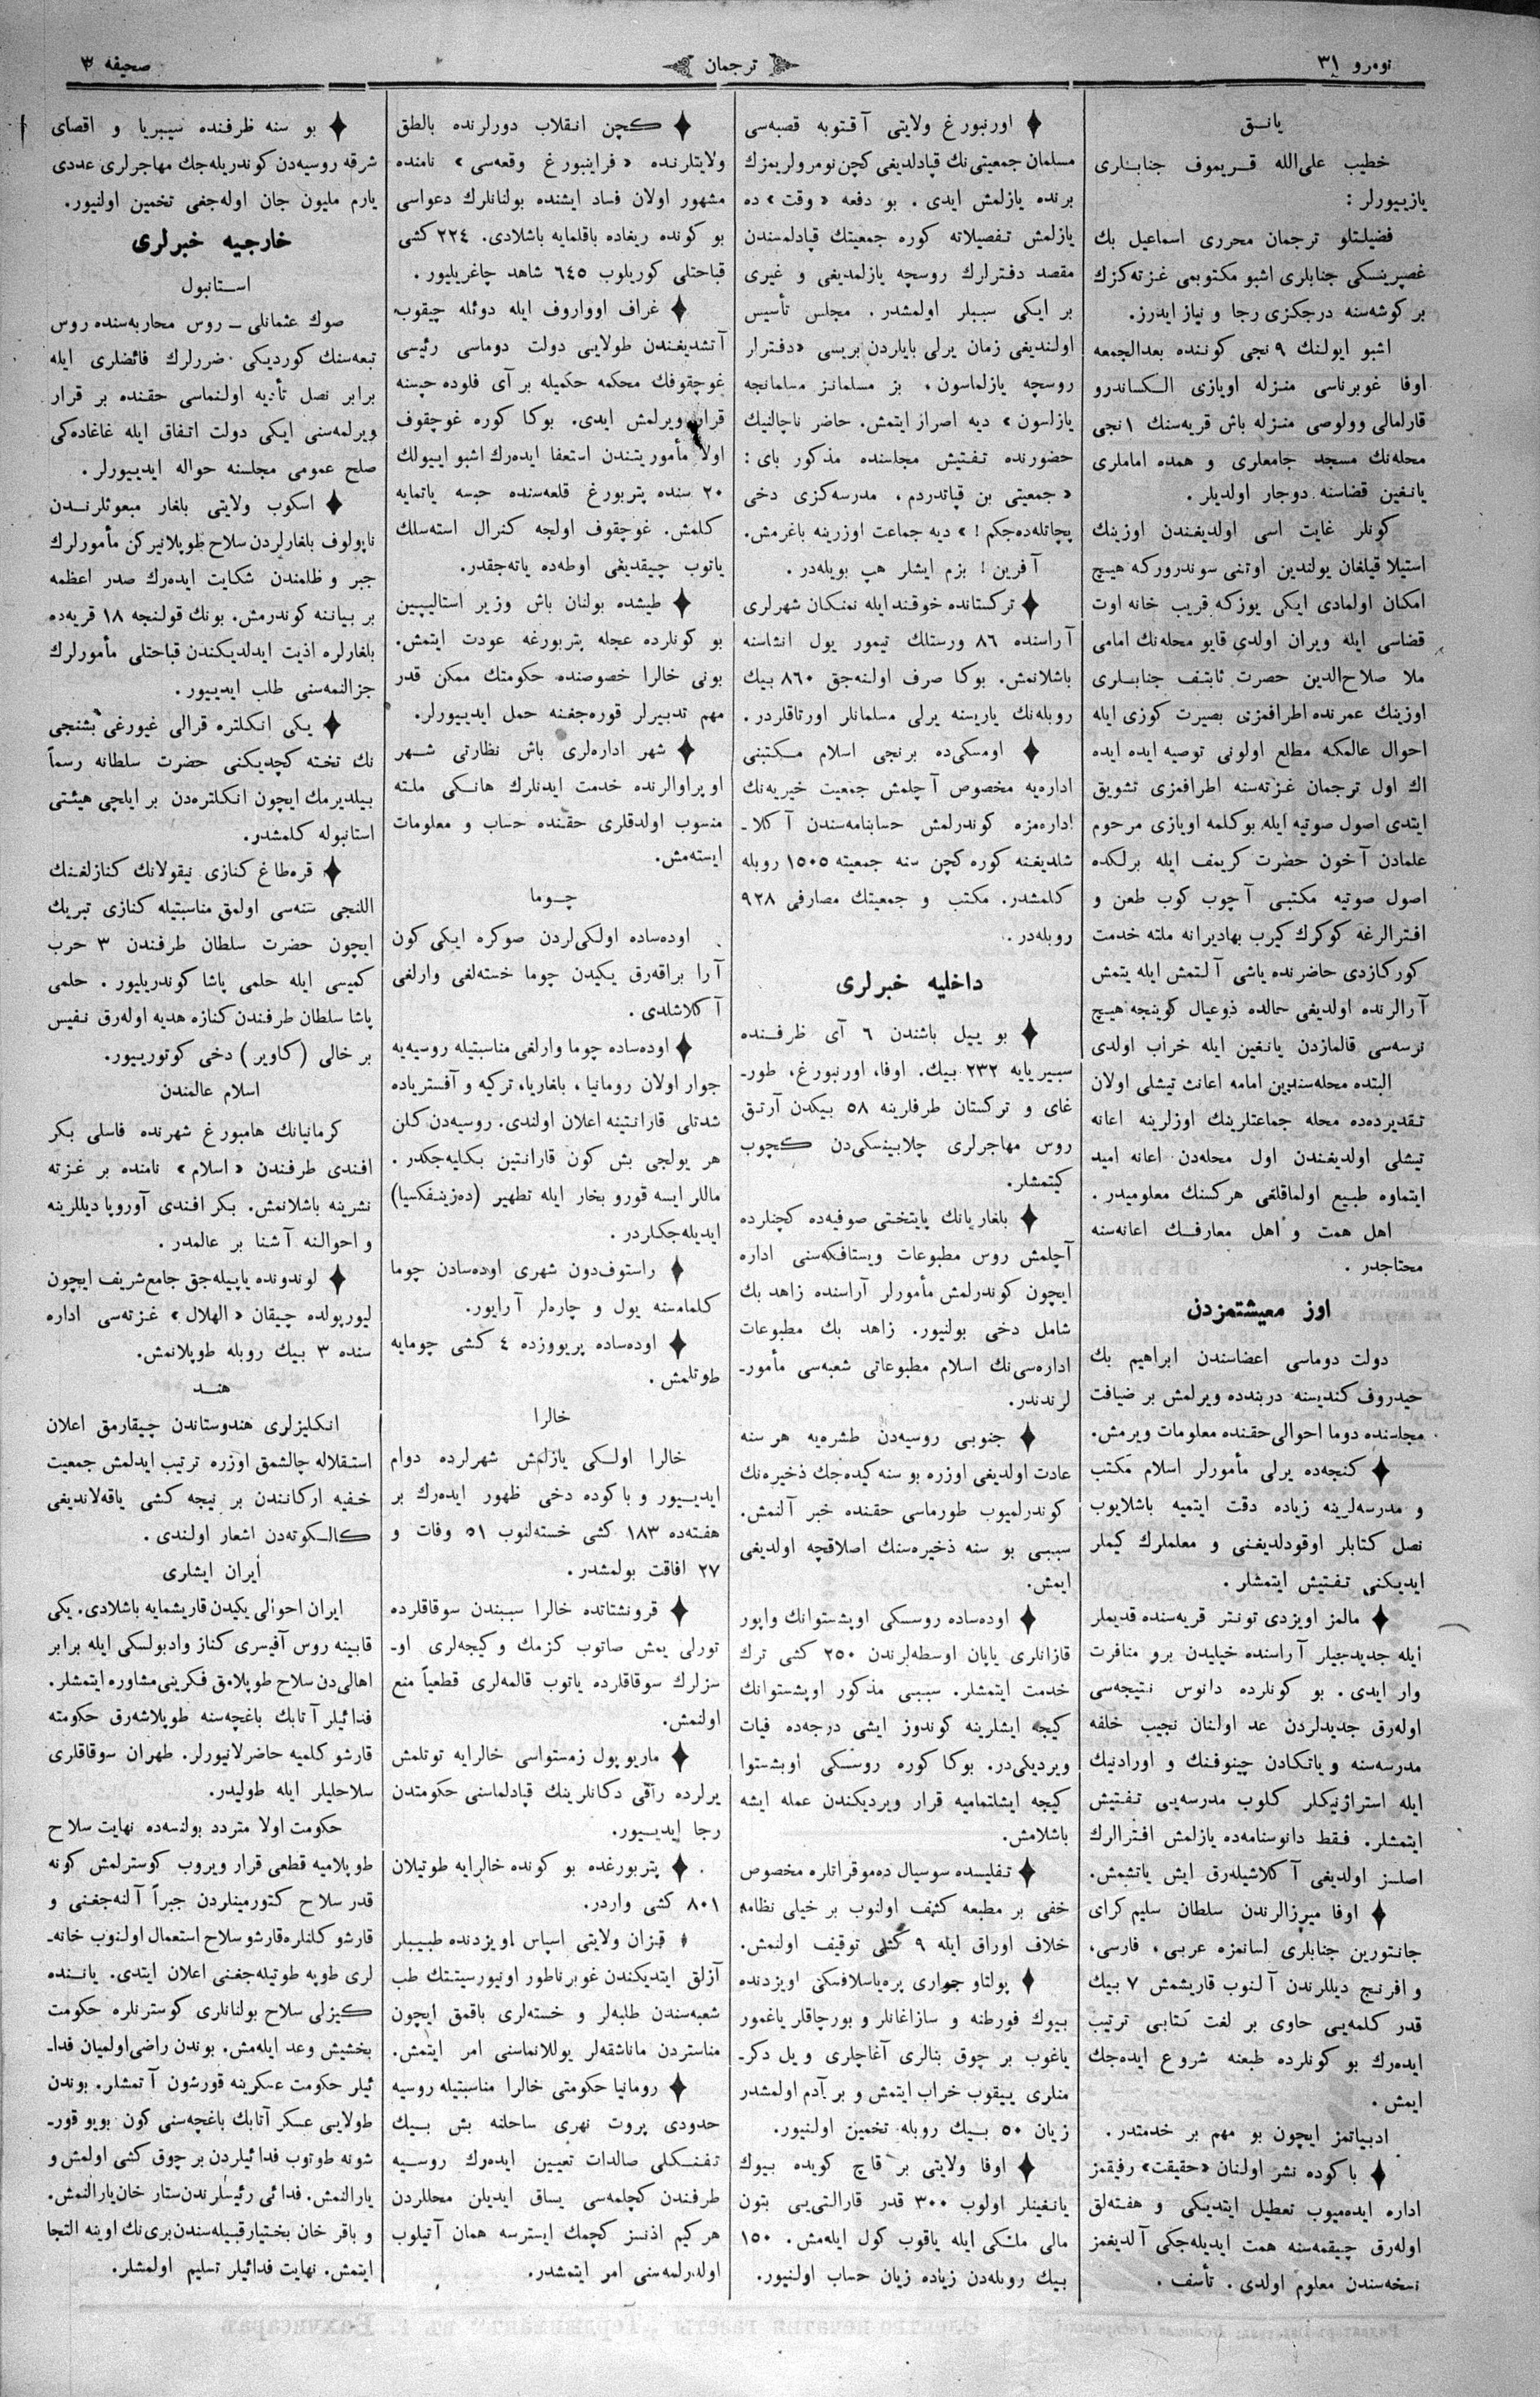 نومرو ٣١
ترجمان
صحيفه ٣
يانـــق
خطيب على‌الله قــريموف جنابــلرى
يازييورلر :
فضيلتلو ترجمان محررى اسماعيل بك
غصپرينسكى جنابلرى اشبو مكتوبمى غزته‌كزك
بر كوشه‌سنه درجكزى رجا و نياز ايدرز.
اشبو ايولنك ٩ نجى كوننده بعدالجمعه
اوفا غوبرناسى منزله اويازى الكساندرو
قارلمالى وولوصى منزله باش قريه‌سنك ١ نجى
محله‌نك مسجد جامعلرى و همده اماملرى
يانغين قضاسنه دوچار اولديلر .
كونلر غايت اسى اولديغندن اوزينك
استيلا قيلغان يولندين اوتنى سوندروركه هيچ
امكان اولمادى ايكى يوزكه قريب خانه اوت
قضاسى ايله ويران اولدى قايو محله‌نك امامى
ملا صلاح‌الدين حضرت ثابتف جنابــلرى
اوزينك عمرنده اطرافمزنى بصيرت كوزى ايله
احوال عالمكه مطلع اولونى توصيه ايده ايده
اك اول ترجمان غزته‌سنه اطرافمزى تشويق
ايتدى اصول صوتيه ايله بوكلمه اويازى مرحوم
علمادن آخون حضرت كريمف ايله برلكده
اصول صوتيه مكتبى آچوب كوب طعن و
افترالرغه كوكرك كيرب بهاديرانه ملته خدمت
كوركازدى حاضرنده ياشى آلتمش ايله يتمش
آرالرنده اولديغى حالده ذوعيال كوينجه هيچ
نرسه‌سى قالمازدن يانغين ايله خراب اولدى
البتده محله‌سندين امامه اعانت تيشلى اولان
تقديرده‌ده محله جماعتلرينك اوزلرينه اعانه
تيشلى اولديغندن اول محله‌دن اعانه اميد
ايتماوه طبيع اولماقلغى هركسنك معلوميدر .
اهل همت و اهل معارفــك اعانه‌سنه
محتاجدر .
اوز معيشتمزدن
دولت دوماسى اعضاسندن ابراهيم بك
حيدروف كنديسنه دربندده ويرلمش بر ضيافت
مجلسنده دوما احوالى حقنده معلومات ويرمش.
كنجه‌ده يرلى مأمورلر اسلام مكتب
و مدرسه‌لرينه زياده دقت ايتميه باشلايوب
نصل كتابلر اوقودلديغنى و معلملرك كيملر
ايديكنى تفتيش ايتمشلر .
مالمز اويزدى تونتر قريه‌سنده قديملر
ايله جديدجيلر آراسنده خيليدن برو منافرت
وار ايدى . بو كونلرده دانوس نتيجه‌سى
اوله‌رق جديدلردن عد اولنان نجيب خلفه
مدرسه‌سنه و ياتكادن چينوفنك و اورادنيك
ايله استراژنيكلر كلوب مدرسه‌يى تفتيش
ايتمشلر. فقط دانوسنامه‌ده يازلمش افترالرك
اصلـز اولديغى آكلاشيله‌رق ايش ياتشمش.
اوفا ميرزالرندن سلطان سليم كراى
جانتورين جنابلرى لسانمزه عربى، فارسى،
و افرنج ديللرندن آلنوب قاريشمش ٧ بيك
قدر كلمه‌يى حاوى بر لغت كتابى ترتيب
ايده‌رك بو كونلرده طبعنه شروع ايده‌جك
ايمش .
ادبياتمز ايچون بو مهم بر خدمتدر.
باكوده نشر اولنان «حقيقت» رفيقمز
اداره ايده‌ميوب تعطيل ايتديكى و هفته‌لق
اوله‌رق چيقمه‌سنه همت ايديله‌جكى آلديغمز
نسخه‌سندن معلوم اولدى . تأسف .
اورنبورغ ولايتى آقتوبه قصبه‌سى
مسلمان جمعيتى‌نك قپادلديغى كچن نومرولريمزك
برنده يازلمش ايدى . بو دفعه «وقت» ده
يازلمش تفصيلاته كوره جمعيتك قپادلمسندن
مقصد دفترلرك روسچه يازلمديغى و غيرى
بر ايكى سببلر اولمشدر. مجلس تأسيس
اولنديغى زمان يرلى بايلردن بريسى «دفترلر
روسچه يازلماسون، بز مسلمانز مسلمانجه
يازلسون» ديه اصرار ايتمش. حاضر ناچالنيك
حضورنده تفتيش مجلسنده مذكور باى :
«جمعيتى بن قپاتدردم، مدرسه‌كزى دخى
پچاتله‌ده‌جكم !» ديه جماعت اوزرينه باغرمش.
آفرين ! بزم ايشلر هپ بويله‌در .
تركستانده خوقند ايله نمنكان شهرلرى
آراسنده ٨٦ ورستلك تيمور يول انشاسنه
باشلانمش. بوكا صرف اولنه‌جق ٨٦٠ بيك
روبله‌نك ياريسنه يرلى مسلمانلر اورتاقلردر.
اومسكى‌ده برنجى اسلام مكتبنى
اداره‌يه مخصوص آچلمش جمعيت خيريه‌نك
اداره‌مزه كوندرلمش حسابنامه‌سندن آكلا-
شلديغنه كوره كچن سنه جمعيته ١٥٠٥ روبله
كلمشدر. مكتب و جمعيتك مصارفى ٩٢٨
روبله‌در .
داخليه خبرلرى
بو ييل باشندن ٦ آى ظرفــنده
سيبريايه ٢٣٢ بيك. اوفا، اورنبورغ، طور-
غاى و تركستان طرفلرينه ٥٨ بيكدن آرتق
روس مهاجرلرى چلابينسكى‌دن كچوب
كيتمشلر.
بلغاريانك پايتختى صوفيه‌ده كچنلرده
آچلمش روس مطبوعات ويستافكه‌سنى اداره
ايچون كوندرلمش مأمورلر آراسنده زاهد بك
شامل دخى بولنيور. زاهد بك مطبوعات
اداره‌سى‌نك اسلام مطبوعاتى شعبه‌سى مأمور-
لرندندر.
جنوبى روسيه‌دن طشره‌يه هر سنه
عادت اولديغى اوزره بو سنه كيده‌جك ذخيره‌نك
كوندرلميوب طورماسى حقنده خبر آلنمش.
سببى بو سنه ذخيره‌سنك اصلاقچه اولديغى
ايمش.
اوده‌ساده روسسكى اوپشستوانك واپور
قازانلرى ياپان اوسطه‌لرندن ٢٥٠ كشى ترك
خدمت ايتمشلر. سببى مذكور اوپشستوانك
كيجه ايشلرينه كوندوز ايشى درجه‌ده فيات
ويرديكى‌در. بوكا كوره روسسكى اوبشستوا
كيجه ايشلتماميه قرار ويرديكندن عمله ايشه
باشلامش.
تفليسده سوسيال ده‌موقراتلره مخصوص
خفى بر مطبعه كشف اولنوب بر خيلى نظامه
خلاف اوراق ايله ٩ كشى توقيف اولنمش.
پولتاو جوارى پره‌ياسلافسكى اويزدنده
بيوك فورطنه و سازاغانلر و بورچاقلر ياغمور
ياغوب بر چوق بنالرى آغاچلرى و يل دكر-
منلرى ييقوب خراب ايتمش و بر آدم اولمشدر
زيان ٥٠ بــيك روبله تخمين اولنيور.
اوفا ولايتى بر قاچ كويده بيوك
يانغينلر اولوب ٣٠٠ قدر قارالتى‌يى بتون
مالى ملكى ايله ياقوب كول ايله‌مش. ١٥٠
بيك روبله‌دن زياده زيان حساب اولنيور.
كچن انقلاب دورلرنده بالطق
ولايتلرنده «فراينبورغ وقعه‌سى» نامنده
مشهور اولان فساد ايشنده بولنانلرك دعواسى
بو كونده ريغاده باقلمايه باشلادى. ٢٢٤ كشى
قباحتلى كوريلوب ٦٤٥ شاهد چاغريليور.
غراف اوواروف ايله دوئله چيقوب
آتشديغندن طولايى دولت دوماسى رئيسى
غوچقوفك محكمه حكميله بر آى قلوده حبسنه
قرار ويرلمش ايدى. بوكا كوره غوچقوف
اولا مأموريتندن استعفا ايده‌رك اشبو ايبولك
٢٠ سنده پتربورغ قلعه‌سنده حبسه ياتمايه
كلمش. غوچقوف اولجه كنرال استه‌سلك
ياتوب چيقديغى اوطه‌ده ياته‌جقدر.
طيشده بولنان باش وزير استاليپين
بو كونلرده عجله پتربورغه عودت ايتمش.
بونى خالرا خصوصنده حكومتك ممكن قدر
مهم تدبيرلر قوره‌جغنه حمل ايدييورلر.
شهر اداره‌لرى باش نظارتى شــهر
اوپراوالرنده خدمت ايدنلرك هانــكى ملته
منسوب اولدقلرى حقنده حساب و معلومات
ايسته‌مش.
چــوما
اوده‌ساده اولكى‌لردن صوكره ايكى كون
آرا براقه‌رق يكيدن چوما خسته‌لغى وارلغى
آكلاشلدى .
اوده‌ساده چوما وارلغى مناسبتيله روسيه‌يه
جوار اولان رومانيا، بلغاريا، تركيه و آفستريا‌ده
شدتلى قارانتينه اعلان اولندى. روسيه‌دن كلن
هر يولجى بش كون قارانتين بكليه‌جكدر .
ماللر ايسه قورو بخار ايله تطهير (ده‌زينفكسيا)
ايديله‌جكلردر .
راستوف‌دون شهرى اوده‌سادن چوما
كلمامسنه يول و چاره‌لر آرايور.
اوده‌ساده پريووزده ٤ كشى چومايه
طوتلمش .
خالرا
خالرا اولــكى يازلمش شهرلرده دوام
ايدييور و باكوده دخى ظهور ايده‌رك بر
هفته‌ده ١٨٣ كشى خسته‌لنوب ٥١ وفات و
٢٧ افاقت بولمشدر .
قرونشتاتده خالرا سببندن سوقاقلرده
تورلى يمش صاتوب كزمك و كيجه‌لرى او-
سزلرك سوقاقلرده ياتوب قالمه‌لرى قطعياً منع
اولنمش.
ماريوپول زمستواسى خالرايه توتلمش
يرلرده رآقى دكانلرينك قپادلماسنى حكومتدن
رجا ايدييور.
پتربورغده بو كونده خالرايه طوتيلان
٨٠١ كشى واردر.
قزان ولايتى اسپاس اويزدنده طبيبلر
آزلق ايتديكندن غوبرناطور اونيورسيتتك طب
شعبه‌سندن طلبه‌لر و خسته‌لرى باقمق ايچون
مناستردن ماناشقه‌لر يوللانماسنى امر ايتمش.
رومانيا حكومتى خالرا مناسبتيله روسيه
حدودى پروت نهرى ساحلنه بش بــيك
تفنــكلى صالدات تعيين ايده‌رك روســيه
طرفندن كچلمه‌سى يساق ايديلن محللردن
هر كيم اذنسز كچمك ايسترسه همان آتيلوب
اولدرلمه‌سنى امر ايتمشدر.
بو سنه ظرفنده سيبريا و اقصاى
شرقه روسيه‌دن كوندريله‌جك مهاجرلرى عددى
يارم مليون جان اوله‌جغى تخمين اولنيور.
خارجيه خبرلرى
استانبول
صوك عثمانلى ــ روس محاربه‌سنده روس
تبعه‌سنك كورديكى ضررلرك فائضلرى ايله
برابر نصل تأديه اولنماسى حقنده بر قرار
ويرلمه‌سنى ايكى دولت اتفاق ايله غاغاده‌كى
صلح عمومى مجلسنه حواله ايدييورلر .
اسكوب ولايتى بلغار مبعوثلرنــدن
ناپولوف بلغارلردن سلاح طوپلانيركن مأمورلرك
جبر و ظلمندن شكايت ايده‌رك صدر اعظمه
بر بياننه كوندرمش. بونك قولنجه ١٨ قريه‌ده
بلغارلره اذيت ايدلديكندن قباحتلى مأمورلرك
جزالنمه‌سنى طلب ايدييور .
يكى انكلتره قرالى غيورغى بشنجى
نك تخته كچديكنى حضرت سلطانه رسماً
بيلديرمك ايچون انكلتره‌دن بر ايلچى هيئتى
استانبوله كلمشدر.
قره‌طاغ كنازى نيقولانك كنازلغنك
اللنجى سنه‌سى اولمق مناسبتيله كنازى تبريك
ايچون حضرت سلطان طرفندن ٣ حرب
كميسى ايله حلمى پاشا كوندريليور . حلمى
پاشا سلطان طرفندن كنازه هديه اوله‌رق نفيس
بر خالى (كاوير) دخى كوتورييور.
اسلام عالمندن
كرمانيانك هامبورغ شهرنده فاسلى بكر
افندى طرفندن «اسلام» نامنده بر غزته
نشرينه باشلانمش. بكر افندى آوروپا ديللرينه
و احوالنه آشنا بر عالمدر .
لوندونده ياپيله‌جق جامع شريف ايچون
ليورپولده چيقان «الهلال» غزته‌سى اداره
سنده ٣ بيك روبله طوپلانمش.
هنــد
انكليزلرى هندوستاندن چيقارمق اعلان
استقلاله چالشمق اوزره ترتيب ايدلمش جمعيت
خفيه اركانندن بر نيجه كشى ياقه‌لانديغى
كالــكوته‌دن اشعار اولندى .
ايران ايشلرى
ايران احوالى يكيدن قاريشمايه باشلادى. يكى
قابينه روس آفيسرى كناز وادبولسكى ايله برابر
اهالى‌دن سلاح طوپلامق فكرينى مشاوره ايتمشلر.
فدائيلر آتابك باغچه‌سنه طوپلاشه‌رق حكومته
قارشو كلميه حاضرلانيورلر. طهران سوقاقلرى
سلاحليلر ايله طوليدر.
حكومت اولا متردد بولنسه‌ده نهايت سلاح
طوپلاميه قطعى قرار ويروب كوسترلمش كونه
قدر سلاح كتورمينلردن جبراً آلنه‌جغنى و
قارشو كلنلره قارشو سلاح استعمال اولنوب خانه-
لرى طوپه طوتيله‌جغنى اعلان ايتدى. يانــنده
كيزلى سلاح بولنانلرى كوسترنلره حكومت
بخشيش وعد ايله‌مش. بوندن راضى اولميان فدا-
ئيلر حكومت عسكرينه قورشون آتمشلر. بوندن
طولايى عسكر آتابك باغچه‌سنى كون بويو قور-
شونه طوتوب فدائيلردن بر چوق كشى اولمش و
يارالنمش. فدائى رئيسلرندن ستار خان يارالنمش.
و باقر خان بختيار قبيله‌سندن برى‌نك اوينه التجا
ايتمش. نهايت فدائيلر تسليم اولمشلر.